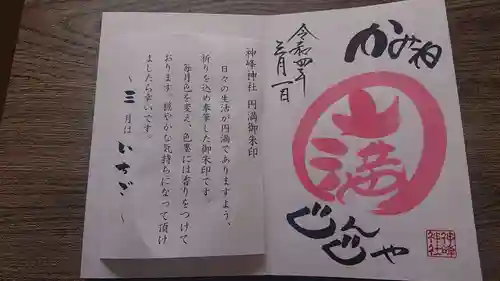 かみね
山
満
じんじや
神峰
神社
令和四年
三月一日
神峰神社 円満御朱印
日々の生活が円満でありますよう、
祈りを込め奉筆した御朱印です。
毎月色を変え、色墨には香りをつけて
おります。穏やかな気持ちになって頂け
ましたら幸いです。
～三月はいちご～